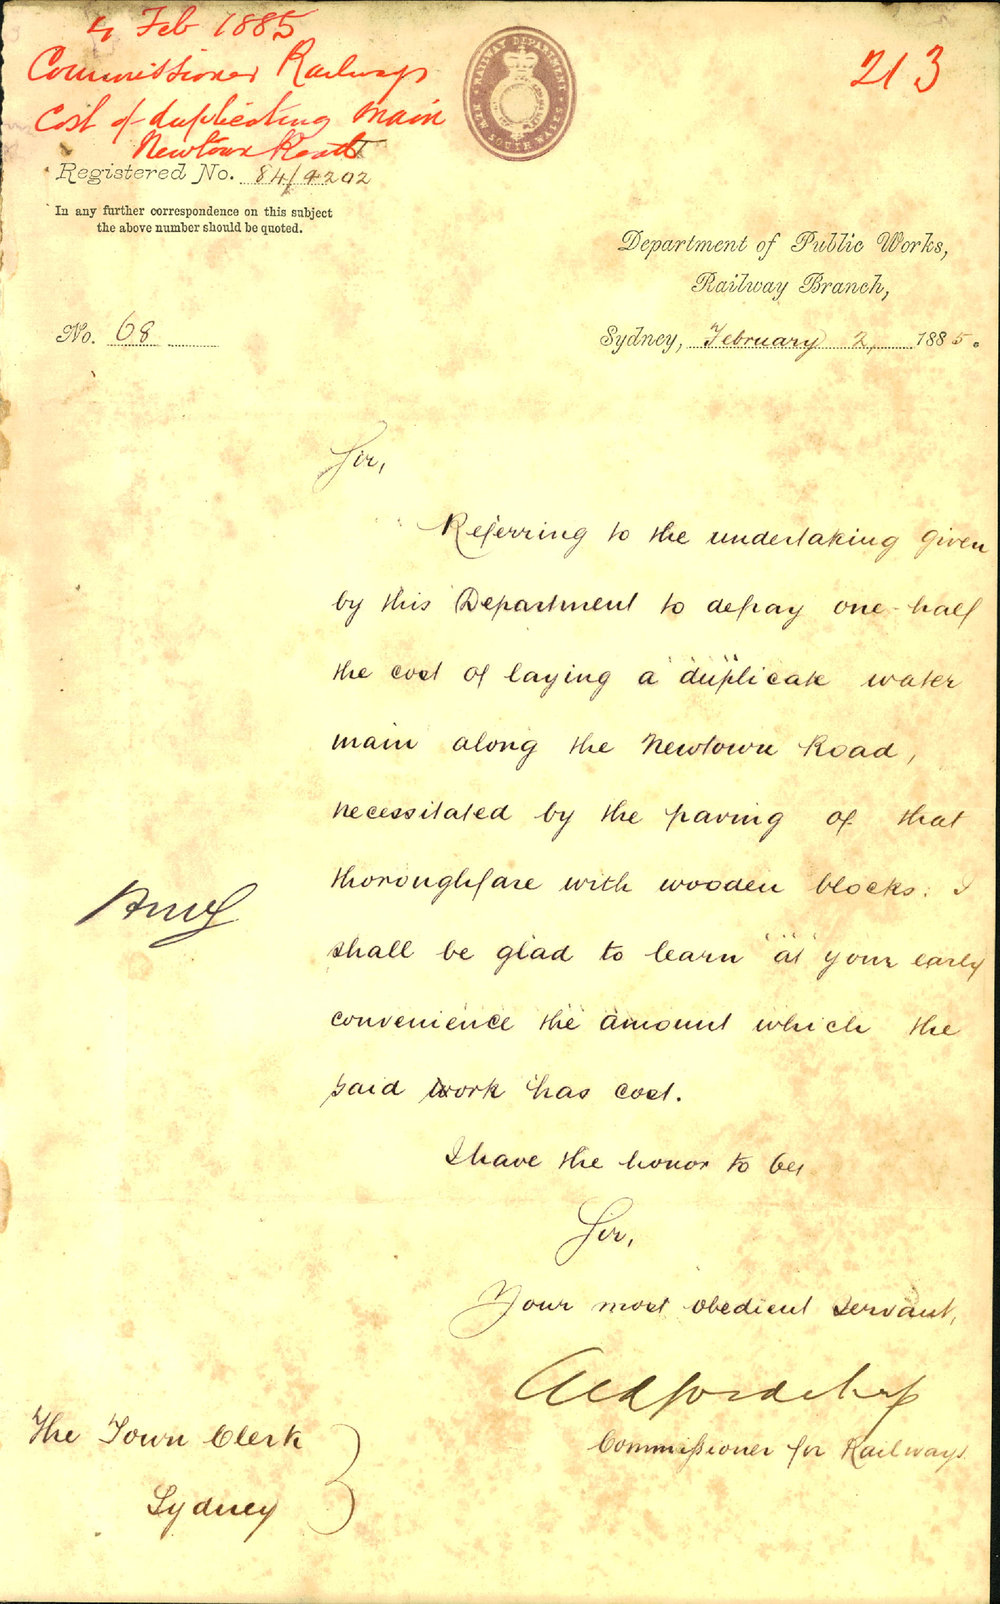 4 Feb 1885
Commissioner Railways
Cost of duplicating main
Newtown Road
213
RAILWAY DEPARTMENT
NEW SOUTH WALES
Registered No. 84/4202
In any further correspondence on this subject
the above number should be quoted.
Department of Public Works,
Railway Branch,
No. 68
Sydney, February 2, 1885.
Sir,
Referring to the undertaking given
by this Department to defray one-half
the cost of laying a duplicate water
main along the Newtown Road,
necessitated by the paving of that
thoroughfare with wooden blocks: I
shall be glad to learn at your early
convenience the amount which the
said work has cost.
I have the honor to be,
Sir,
Your most obedient servant,
Commissioner for Railways
The Town Clerk
Sydney